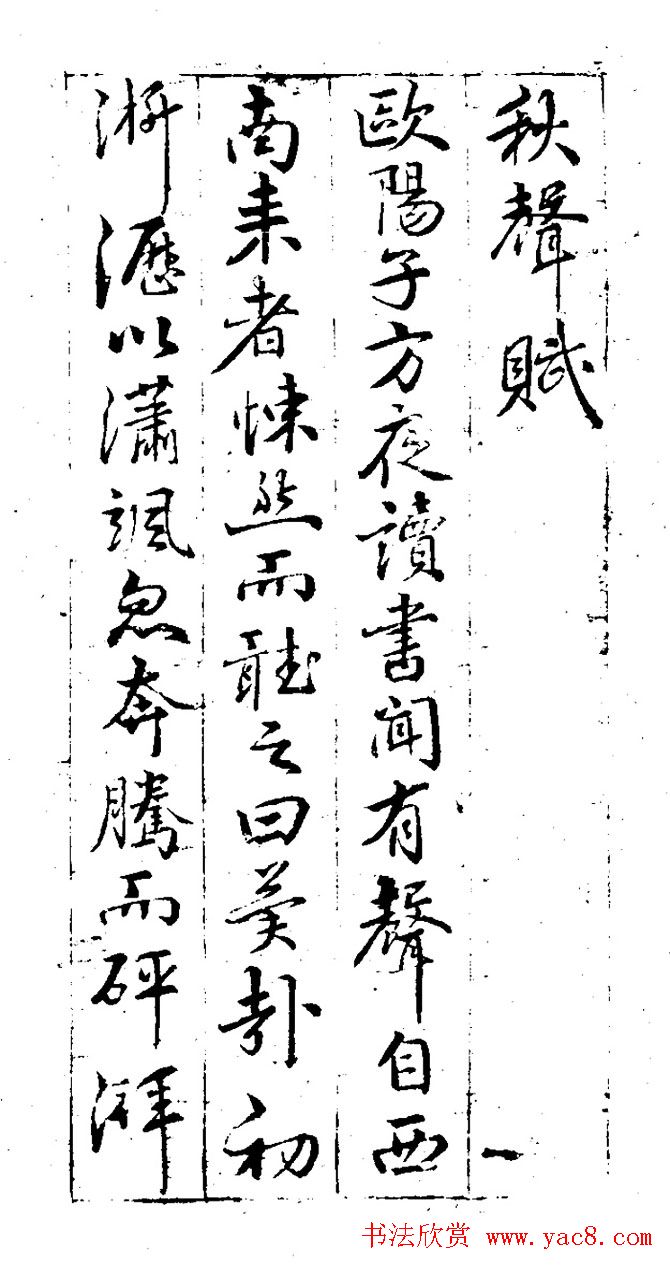 秋聲賦
一
歐陽子方夜讀書聞有聲自西
南来者悚然而聽之曰異哉初
淅瀝以瀟颯忽奔騰而砰湃
书法欣赏 www.yac8.com